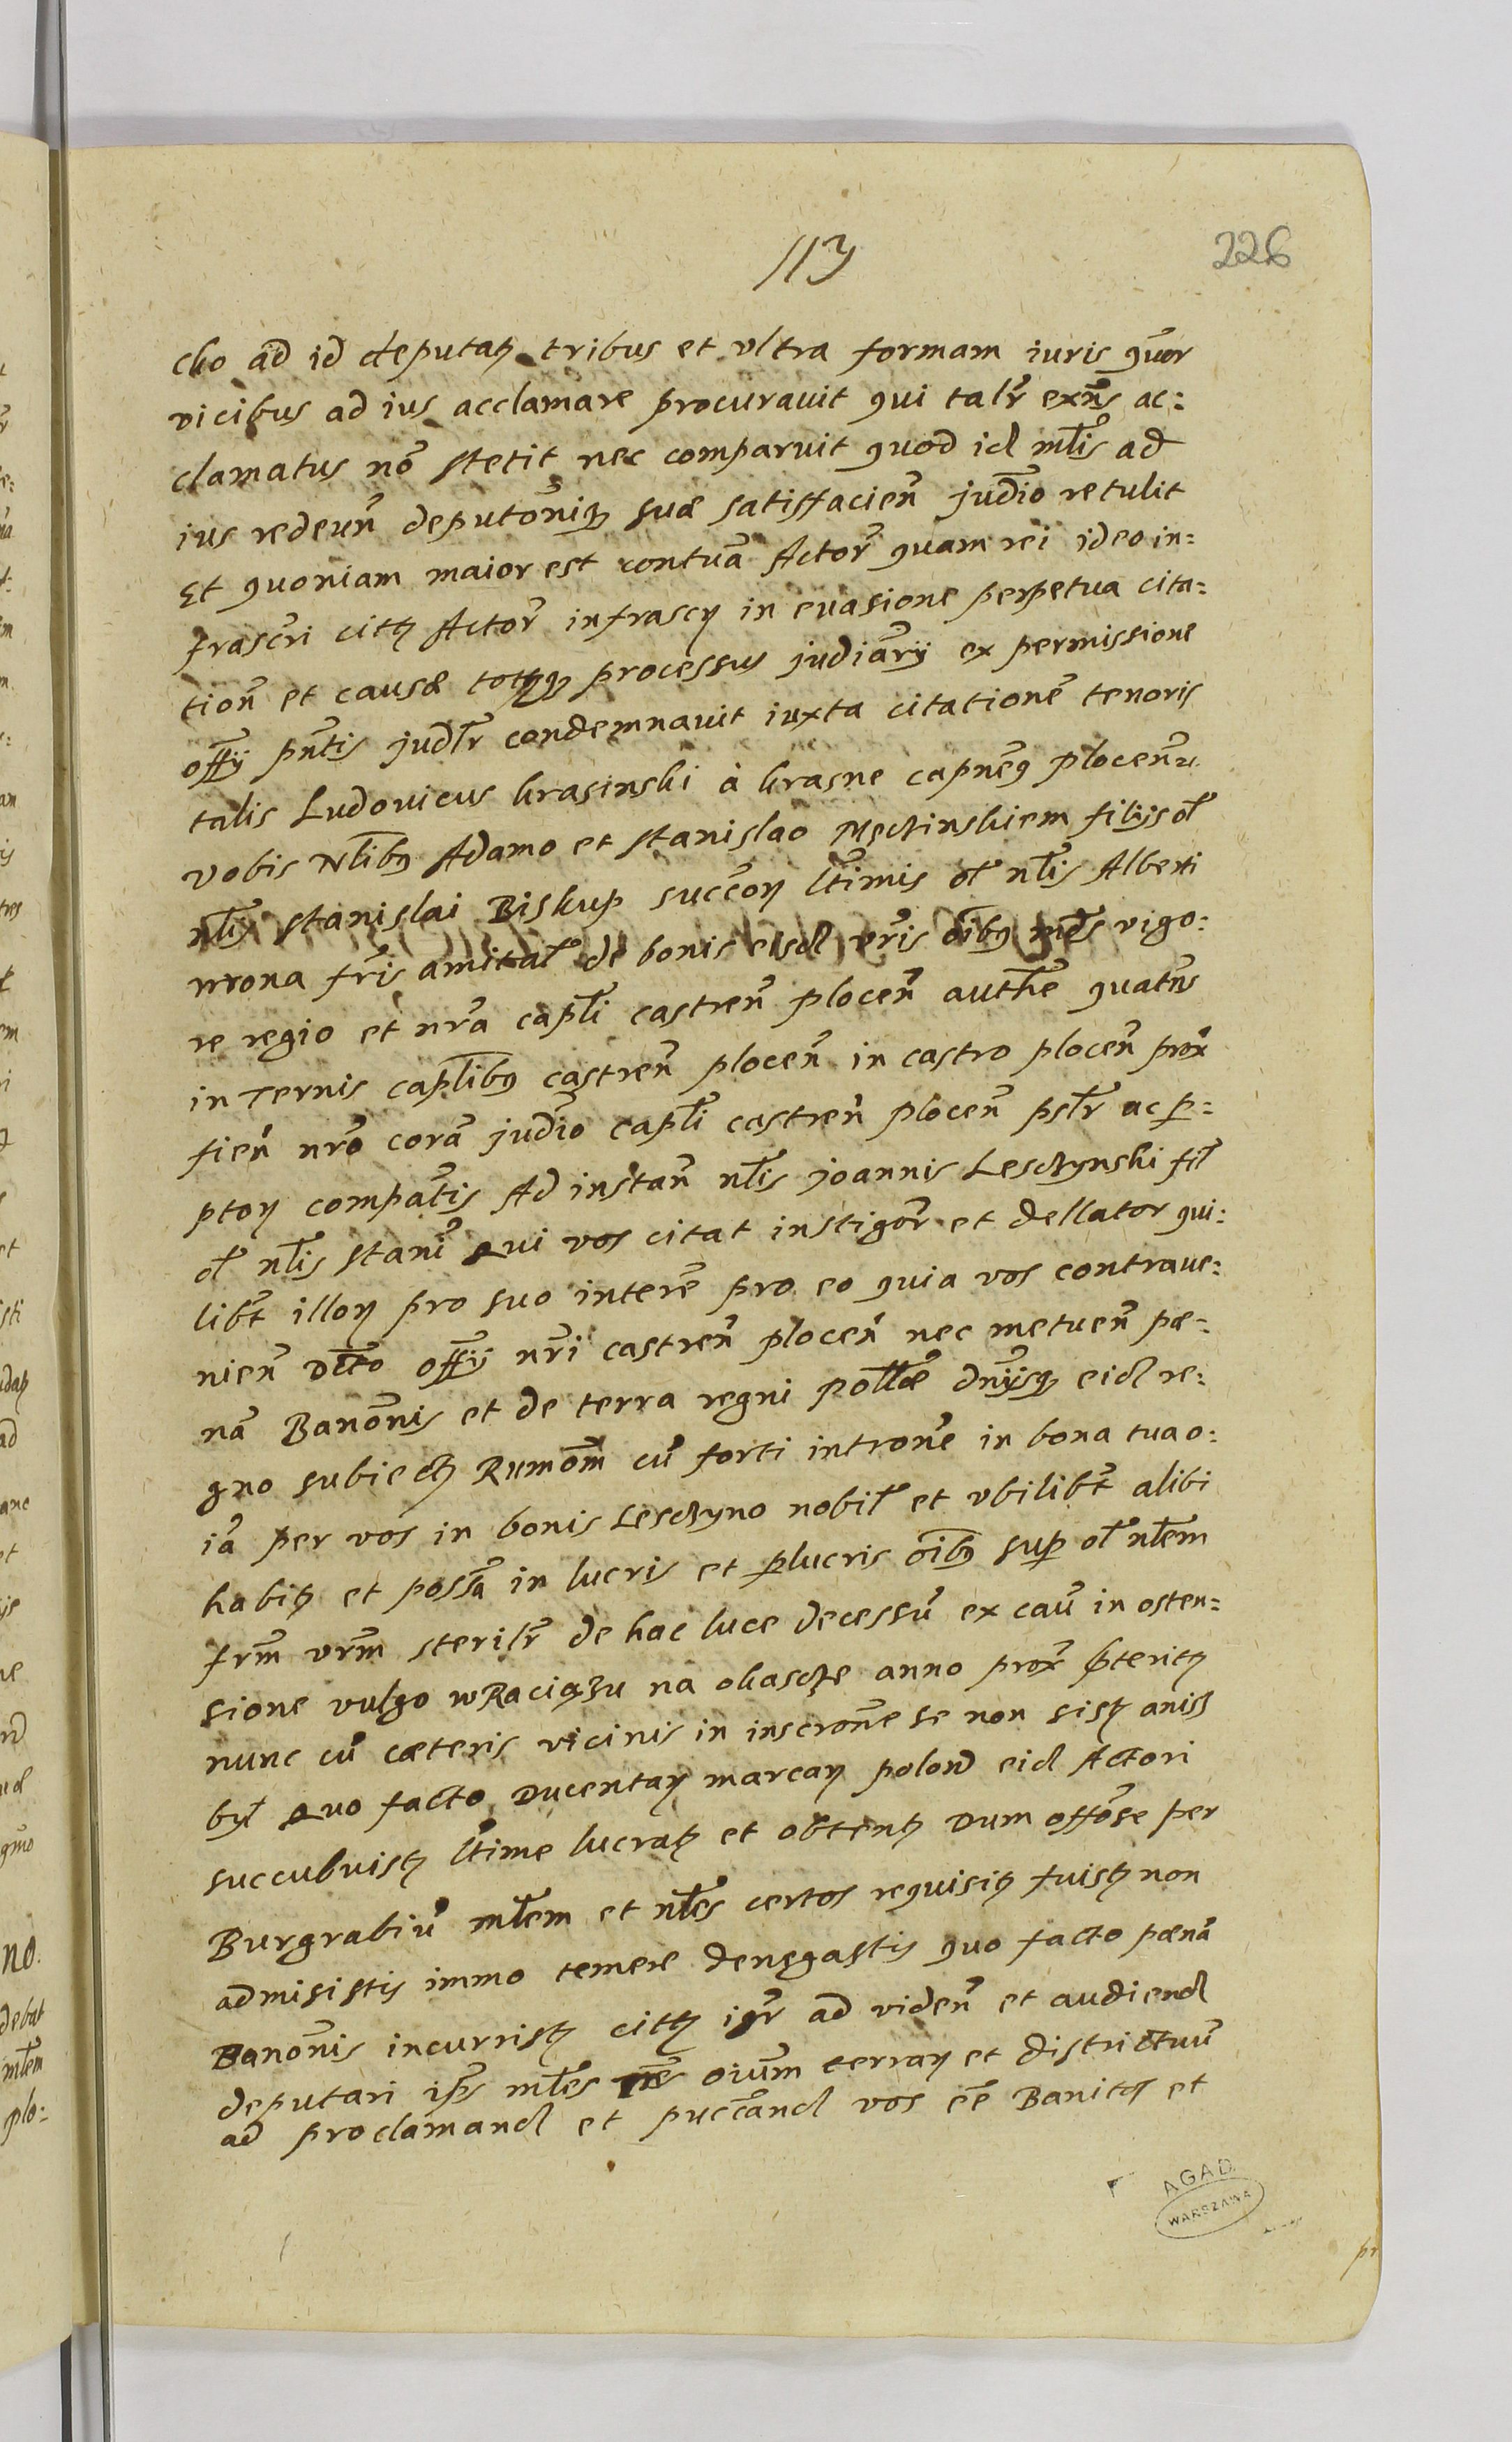 113
226
cho ad id deputatȝ tribus et vltra formam iuris qu̅or
vicibus ad ius acclamare procurauit qui talr̅ exn̅s ac:
clamatus no̅ stetit nec comparuit quod id ml̅is ad
ius redeun̅ deputo̅niqȝ suæ satisfacien̅ judi̅o retulit
Et quoniam maior est contua̅ Actor̅ quam rei ideo in:
frasc̅ri citȝ Actor̅ infrascȝ in euasione perpetua cita:
tion̅ et causæ totqȝ processus judia̅rij ex permissione
off̅ij pn̅tis judl̅r condemnauit iuxta citatione̅ tenoris
talis Ludouicus krasinski à krasne capne̅9 plocen̅
vobis Nl̅ib9 Adamo et Stanislao filijs ol̅
nl̅is Stanislai Biskup succ̅oȝ lt̅imis ol̅ nl̅is Alberti
wrona fr̅is amital̅ de bonis eisd vr̅is o̅ib9 md̅s vigo:
re regio et nr̅a capl̅i castren̅ plocen̅ authe̅ quatn̅s
in Ternis capl̅ib9 castren̅ plocen̅ in castro plocen̅ prox̅
fien̅ nro̅ cora̅ judi̅o capl̅i castren̅ plocen̅ psl̅r ac p:
ptoȝ compa̅tis Ad instan̅ nl̅is joannis Lesczynski fil̅
ol̅ nl̅is Stani̅ Qui vos citat instigor̅ et dellator qui:
libt̅ illoȝ pro suo intere̅ pro eo quia vos contraue:
nien̅ Dc̅to off̅ij nr̅i castren̅ plocen̅ nec metuen̅ pæ:
na̅ Bano̅nis et de terra regni pol̅læ dn̅ijsqȝ eid re:
gno subiectȝ Rumo̅m cu̅ forti introne̅ in bona tua o:
ia̅ per vos in bonis Lesczyno nobil̅ et vbilibt̅ alibi
habitȝ et poss̅a in lucris et perlucris o̅ib9 sup ol̅ nl̅em
fr̅m vr̅m sterilr̅ de hac luce decessu̅ ex cau̅ in osten:
sione vulgo w Raciązu na okasczę anno prox̅ pteritȝ
nunc cu̅ cæteris vicinis in inscro̅ne se non sistȝ anisz
był Quo facto Ducentaȝ marcaȝ polon̅ eid Actori
succubuistȝ lt̅ime lucratȝ et obtentȝ Dum offo̅se per
Burgrabiu̅ ml̅em et nl̅es certos requisitȝ fuistȝ non
admisistis immo temere denegastis quo facto pæna̅
Bano̅nis incurristȝ citȝ igr̅ ad viden̅ et audiend
deputari ips̅ ml̅es oium̅ terraȝ et districtuu̅
ad proclamand et pucc̅and vos ee̅ Banitos et
AGAD
WARSZAWA